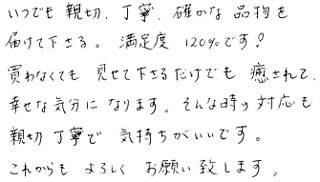 いつでも 親切、丁寧、確かな 品物を
届けて下さる。 満足度 120%です!
買わなくても 見せて下さるだけでも 癒されて、
幸せな気分に なります。そんな時の 対応も
親切 丁寧で 気持ちがいいです。
これからも よろしく お願い致します。